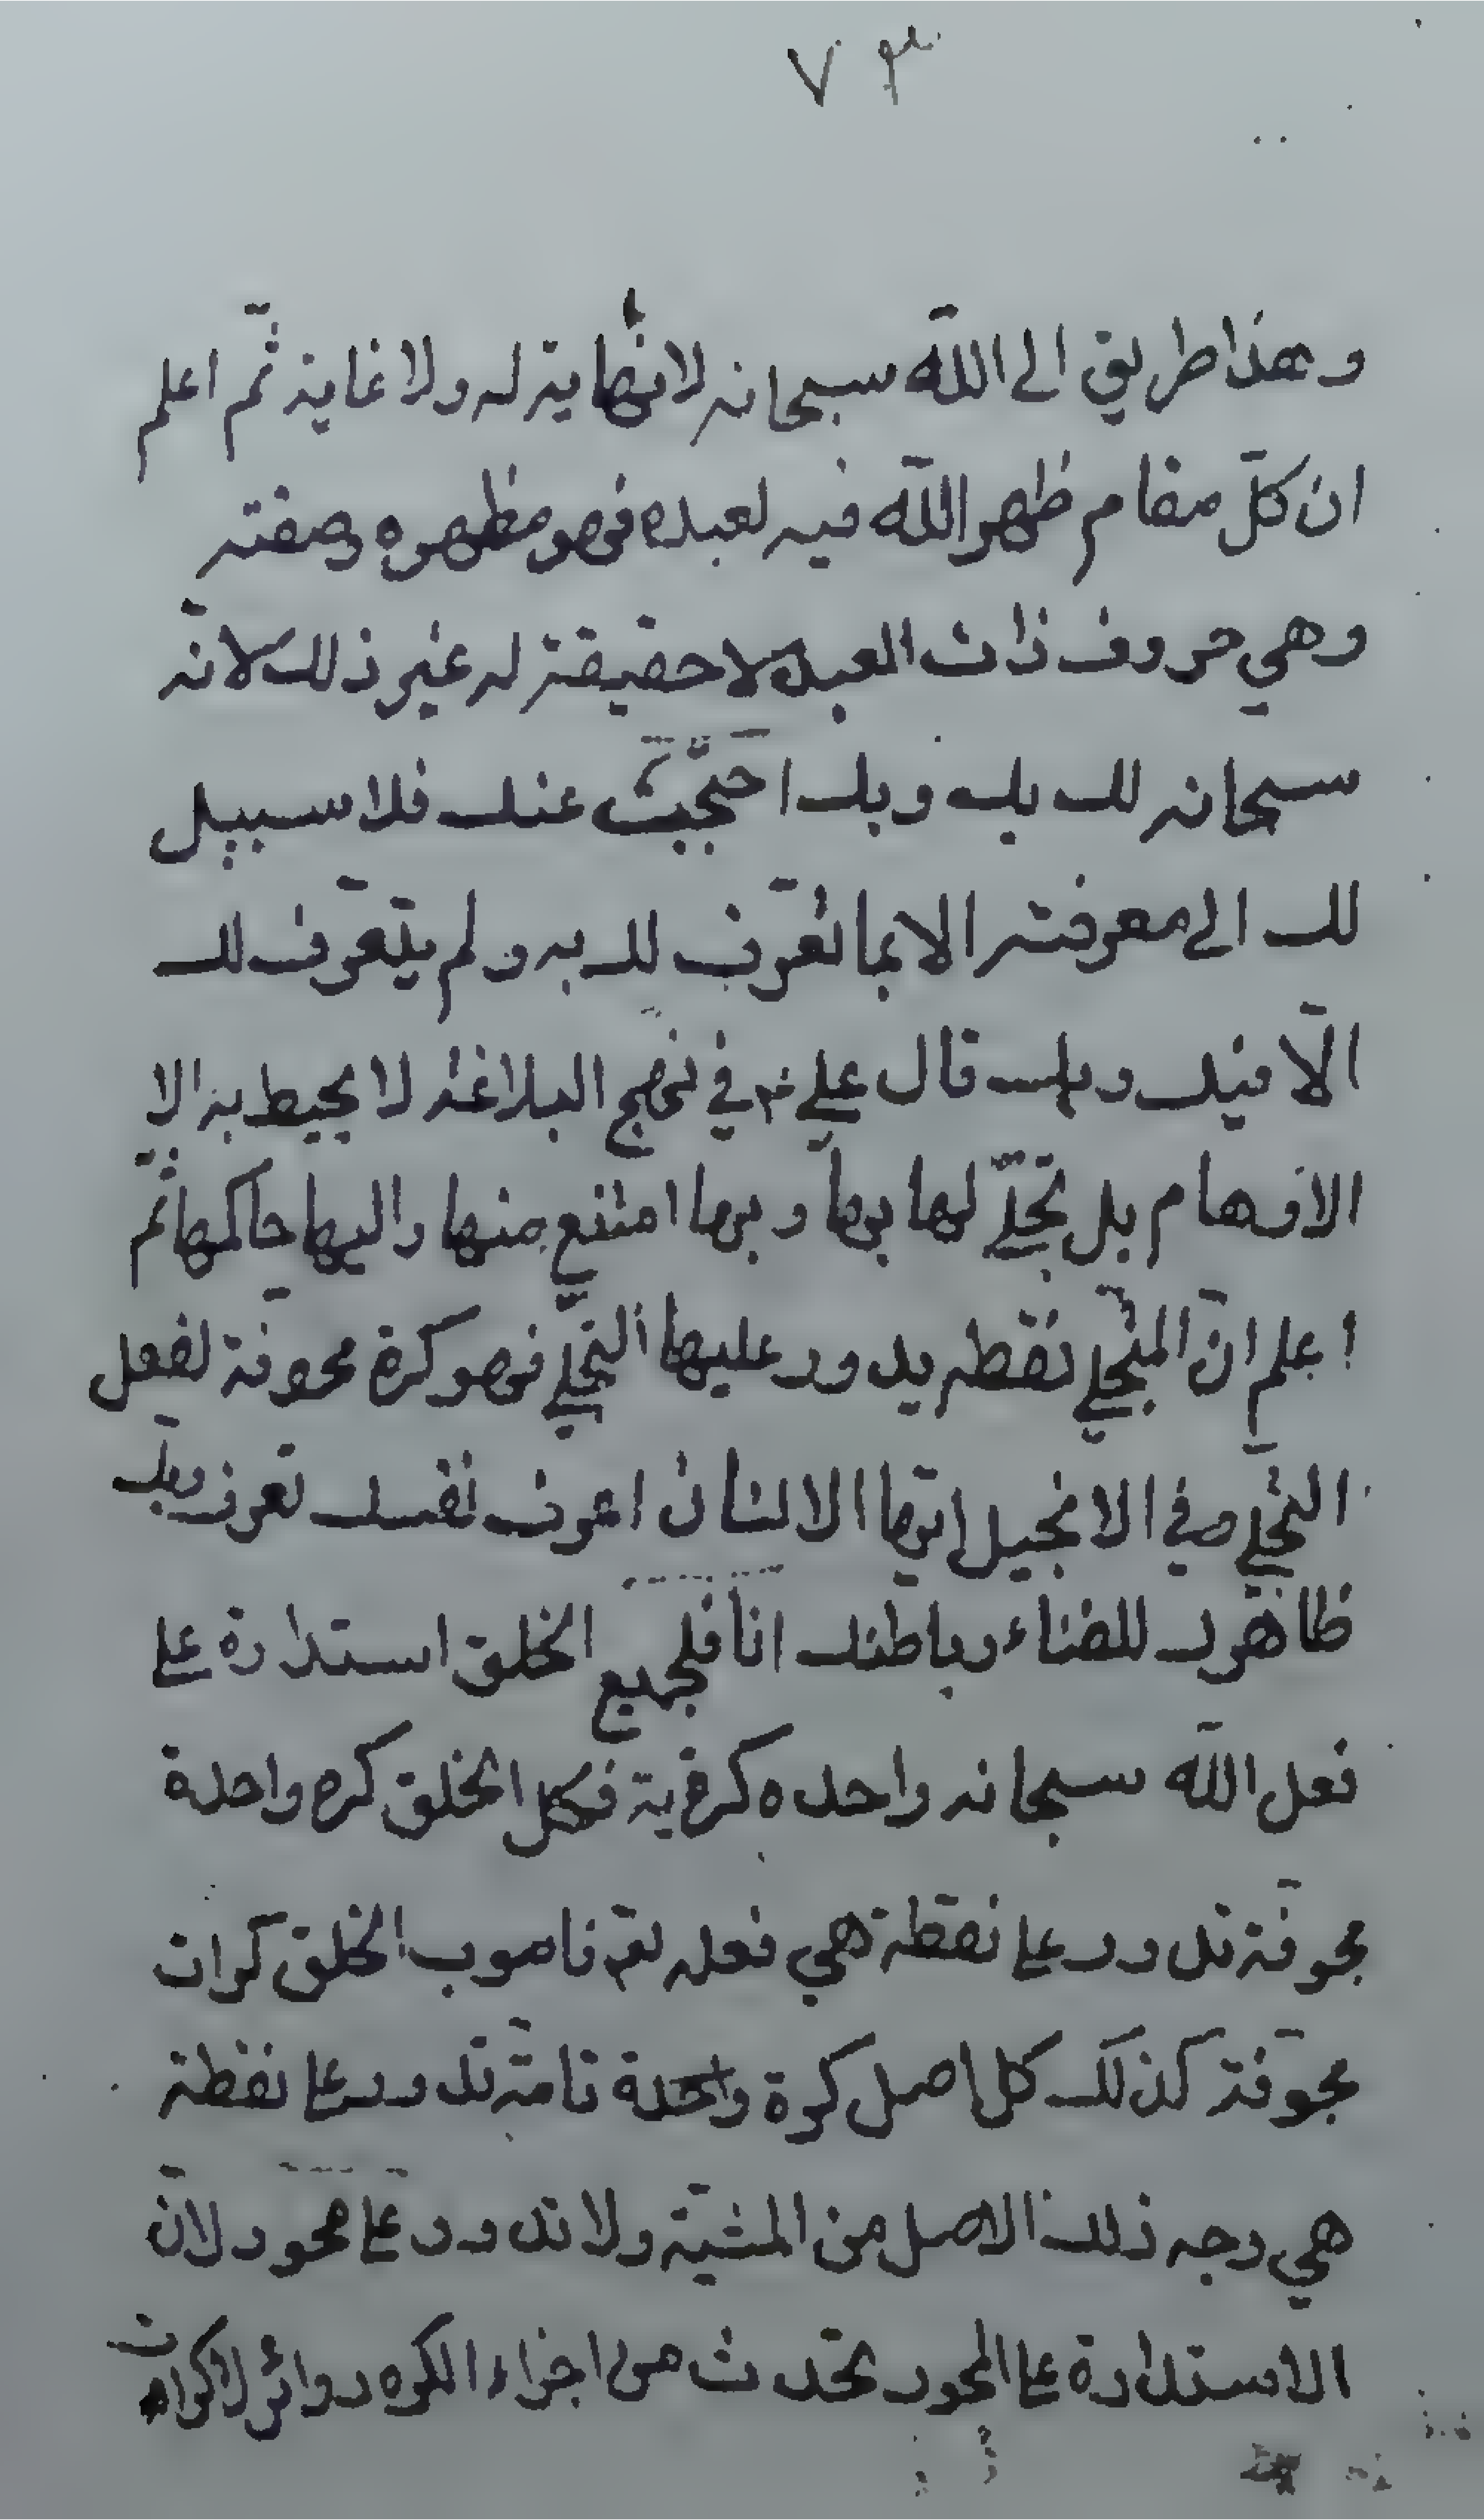 ٧٣
وهذا طريق الى الله سبحانه لا نهاية له ولا غاية ثمّ اعلم
ان كلّ مقام ظهر الله فيه لعبده فهو مظهره وصفته
وهي حروف ذات العبد لا حقيقة له غير ذلك لانّه
سبحانه لك بك وبك احتجب عنك فلا سبيل
لك الى معرفته الا بما تعرّف لك به ولم يتعرّف لك
الّا فيك وبك قال علي ع في نهج البلاغة لا يحيط به الا
الاوهام بل تجلّى لها بها وبها امتنع منها واليها حاكمها ثمّ
اعلم انّ المتجلي نقطه يدور عليها التجلّي فهو كرة مجوفة لفعل
التجلّي وفي الانجيل ايّها الانسان اعرف نفسك تعرف ربّك
ظاهرك للفناء وباطنك انا فلجميع الخلق استدارة على
فعل الله سبحانه واحده كروية فكل الخلق كره واحدة
مجوّفة تدور على نقطة هي فعله تع فاصوب الخلق كرات
مجوّفة كذلك كل اصل كرة واحدة تامّة تدور على نقطة
هي وجه ذلك الاصل من المشيّة ولا تدور على محور لانّ
الاستدارة على المحور تحدث من اجزاء الكره دوائر لا كرات